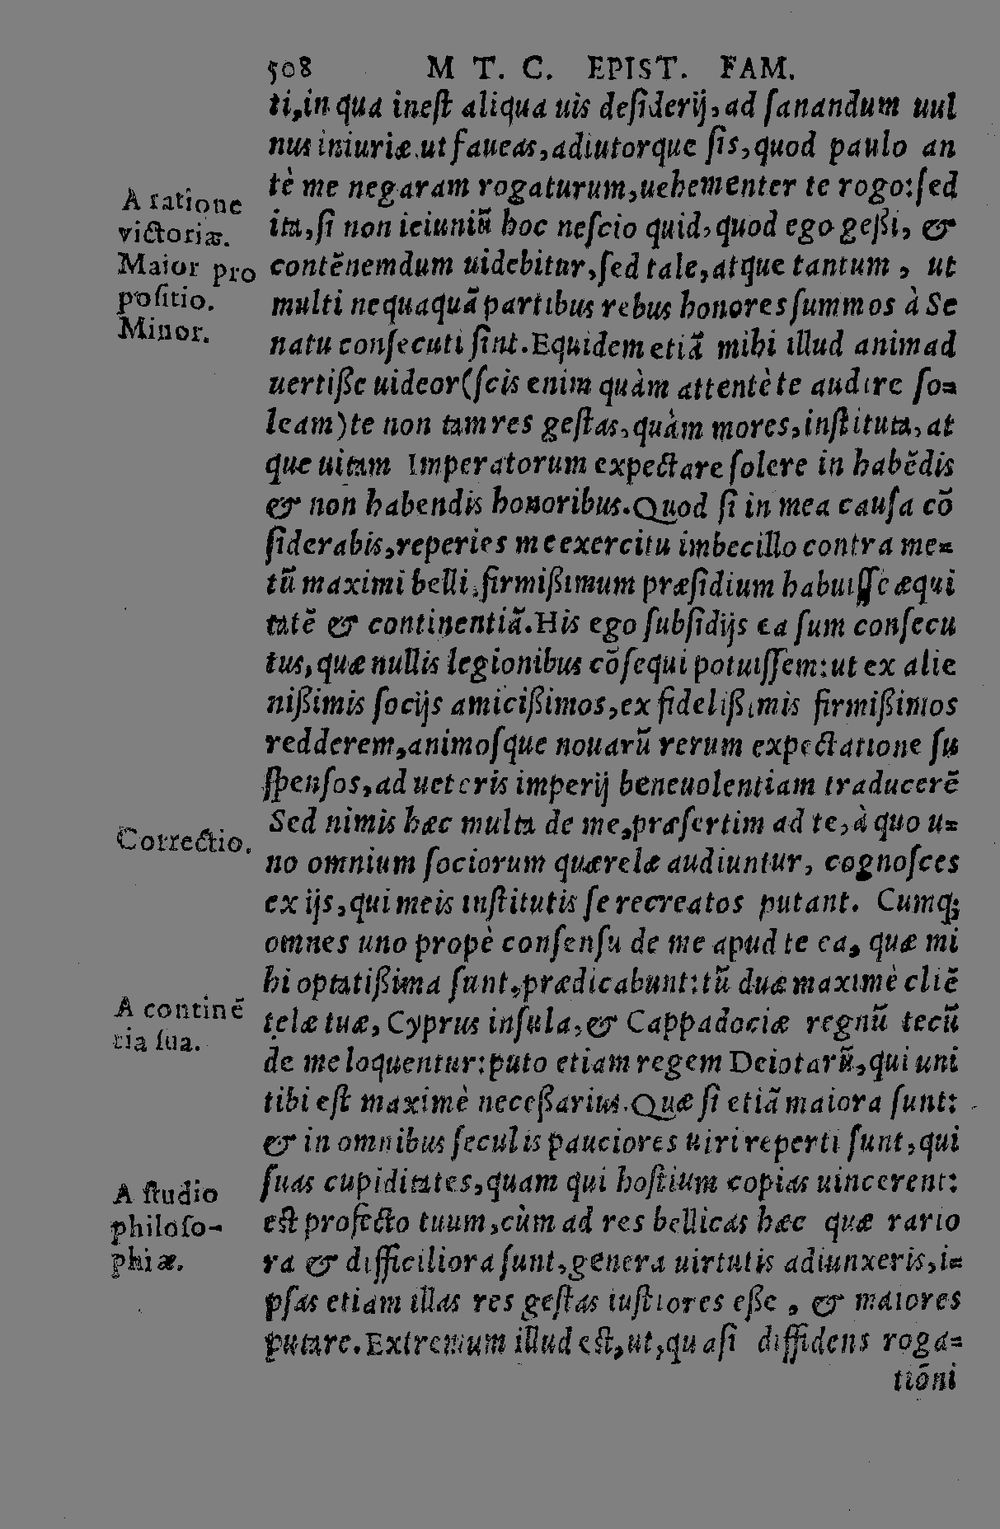 508 M T. C. EPIST. FAM.
ti, in qua inest aliqua uis desiderij, ad sanandum uul
nus iniuriæ. ut faueas, adiutorque sis, quod paulo an
tè me negaram rogaturum, uehementer te rogo: sed
ita, si non ieiuniũ hoc nescio quid, quod ego geßi, &
contẽnemdum uidebitur, sed tale, atque tantum, ut
multi nequaquã partibus rebus honores summos à Se
natu consecuti sint. Equidem etiã mihi illud animad
uertiße uideor (scis enim quàm attentè te audire so=
leam) te non tam res gestas, quàm mores, instituta, at
que uitam Imperatorum expectare solere in habẽdis
& non habendis honoribus. Quod si in mea causa cõ
siderabis, reperies me exercitu imbecillo contra me=
tũ maximi belli, firmißimum præsidium habuisse æqui
tatẽ & continentiã. His ego subsidijs ea sum consecu
tus, quæ nullis legionibus cõsequi potuissem: ut ex alie
nißimis socijs amicißimos, ex fidelißimis firmißimos
redderem, animosque nouarũ rerum expectatione su
spensos, ad ueteris imperij beneuolentiam traducerẽ
Sed nimis hæc multa de me, præsertim ad te, à quo u=
no omnium sociorum quærelæ audiuntur, cognosces
ex ijs, qui meis institutis se recreatos putant. Cumq;
omnes uno propè consensu de me apud te ea, quæ mi
hi optatißima sunt, prædicabunt: tũ duæ maximè cliẽ
telæ tuæ, Cyprus insula, & Cappadociæ regnũ tecũ
de me loquentur: puto etiam regem Deiotarũ, qui uni
tibi est maximè neceßarius. Quæ si etiã maiora sunt:
& in omnibus seculis pauciores uiri reperti sunt, qui
suas cupiditates, quam qui hostium copias uincerent:
est profecto tuum, cùm ad res bellicas hæc quæ rario
ra & difficiliora sunt, genera uirtutis adiunxeris, i=
psas etiam illas res gestas iustiores eße, & maiores
putare. Extremum illud est, ut, quasi diffidens roga=
tiõni
A ratione
victoriæ.
Maior pro
positio.
Minor.
Correctio.
A continẽ
tia sua.
A studio
philoso-
phiæ.